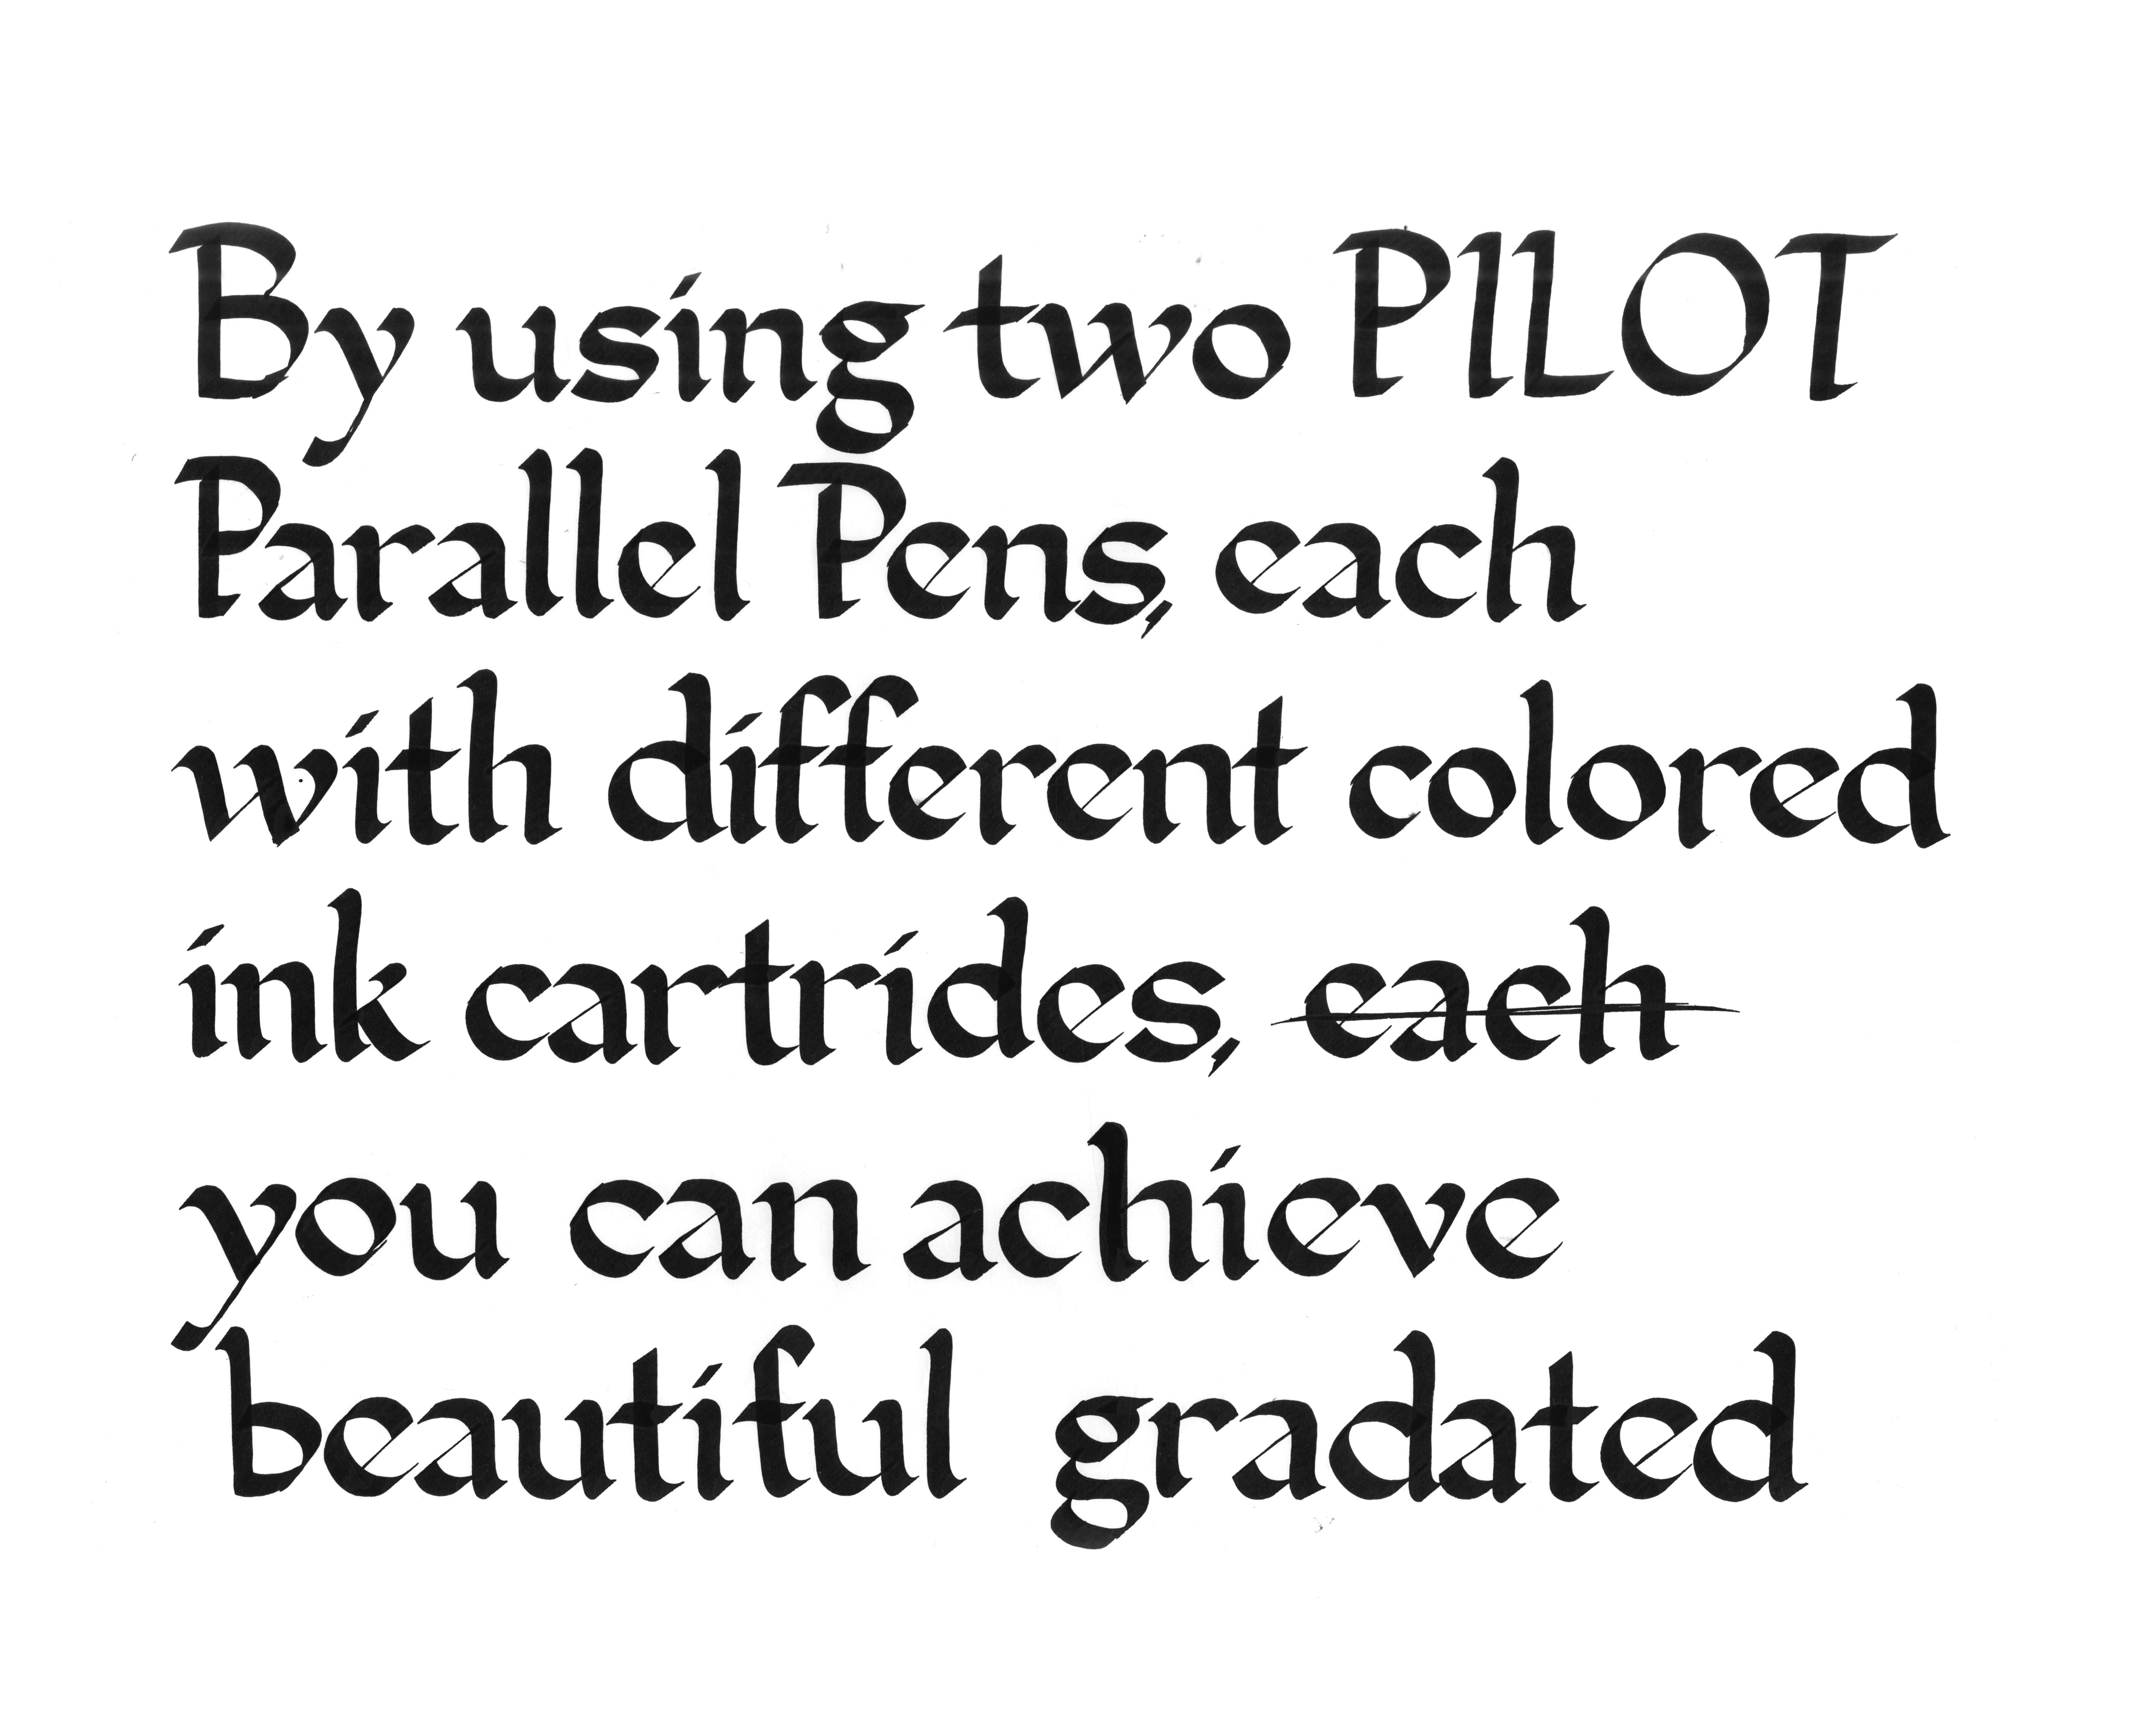 By using two PILOT
Parallel Pens, each
with different colored
ink cartrides, each
you can achieve
beautiful gradated